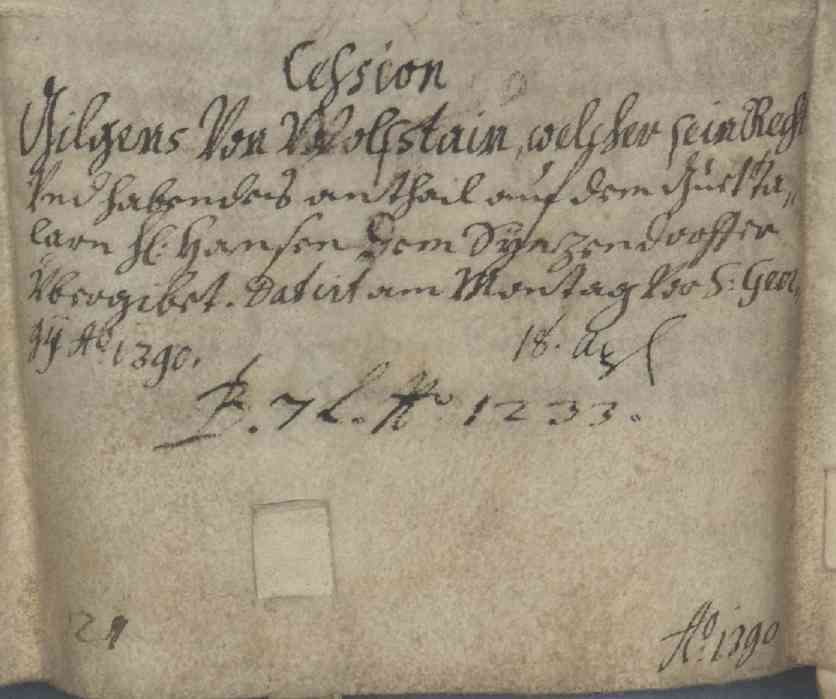 Cession
Gilgens Von Wolfstain, welcher sein Recht
Vnd habendes antheil auf dem Guet Ta„
larn H: Hansen dem Synzendorffer
Vbergibet. Datirt am Montag Vor S: Geor„
gy Aõ. 1390. 18. Apl
B. 7 L. Nº 1233.
21
Aõ. 1390